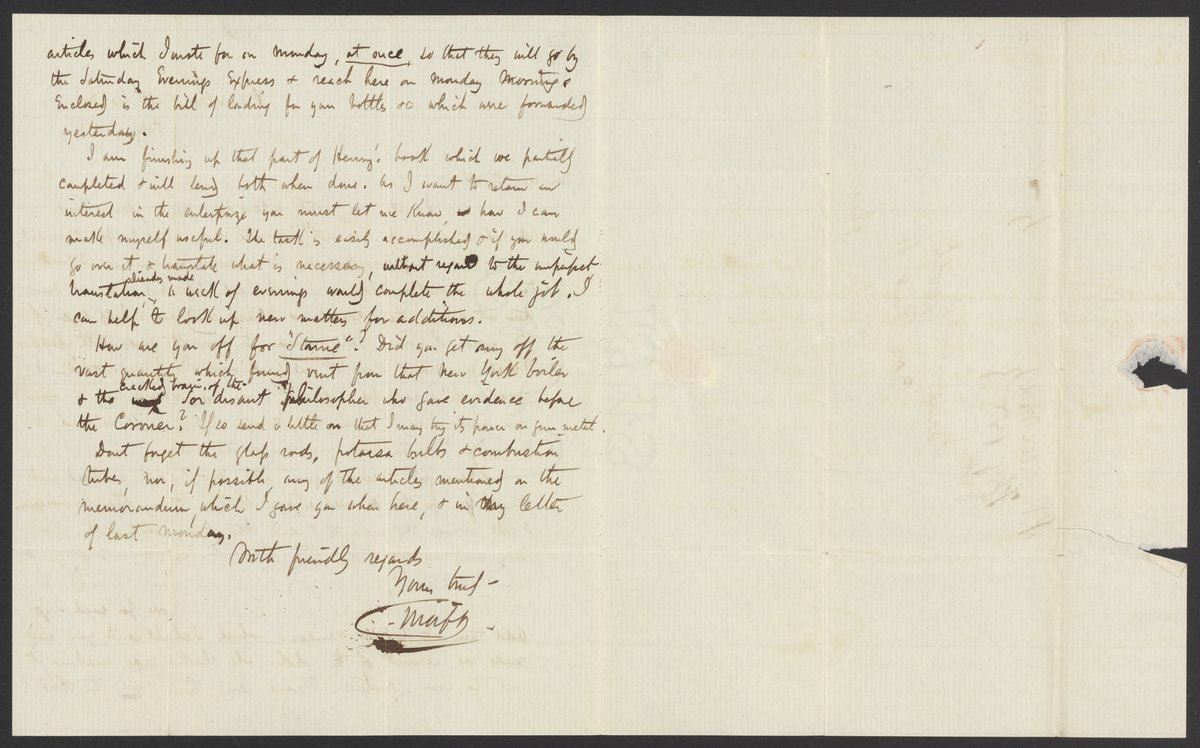 articles which I wrote for on Monday, at once, so that they will go by
the Saturday Evenings Express & reach here on Monday Morning.
Enclosed is the bill of lading for your bottles &c which were forwarded
yesterday.
I am finishing up that part of Henry's book which we partially
completed & will send both when done. As I want to retain an
interest in the enterprize you must let me know, how I can
make myself useful. The task is easily accomplished & if you would
go over it & translate what is necessary, without regard to the imperfect
translation, already made a week of evenings would complete the whole job. I
can help to look up new matters for additions.
How are you off for "Stame"? Did you get any off the
vast quantity which found vent from that New York boiler
& the cracked brain of the Soi disant philosopher who gave evidence before
the Coroner? If so send a little on that I may try its power on gun metal.
Dont forget the glass rods, potassa bulbs & combustion
tubes, nor, if possible, any of the articles mentioned on the
memorandum, which I gave you when here, & in my letter
of last Monday.
With friendly regards
Yours truly